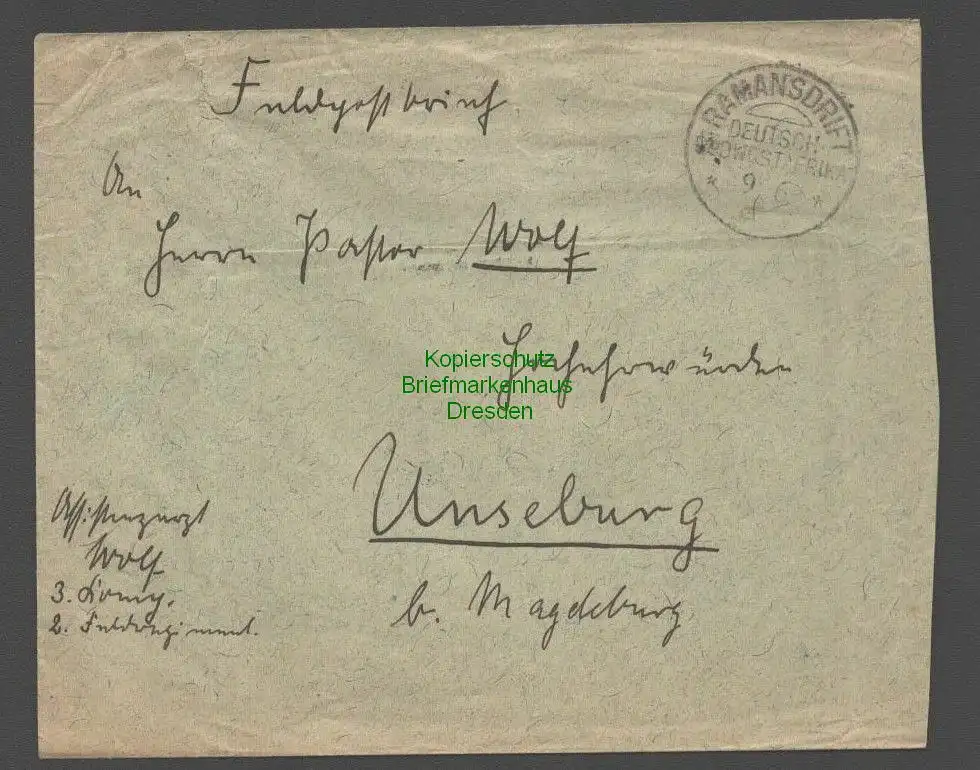 Feldpostbrief
RAMANSDRIFT
DEUTSCH-
SÜDWESTAFRIKA
* 9 *
An
Herrn Pastor Wolf
Hochehrwürden
Kopierschutz
Briefmarkenhaus
Dresden
Unseburg
b. Magdeburg
Assistenzarzt
Wolf
3. Komp.
2. Feldregiment.